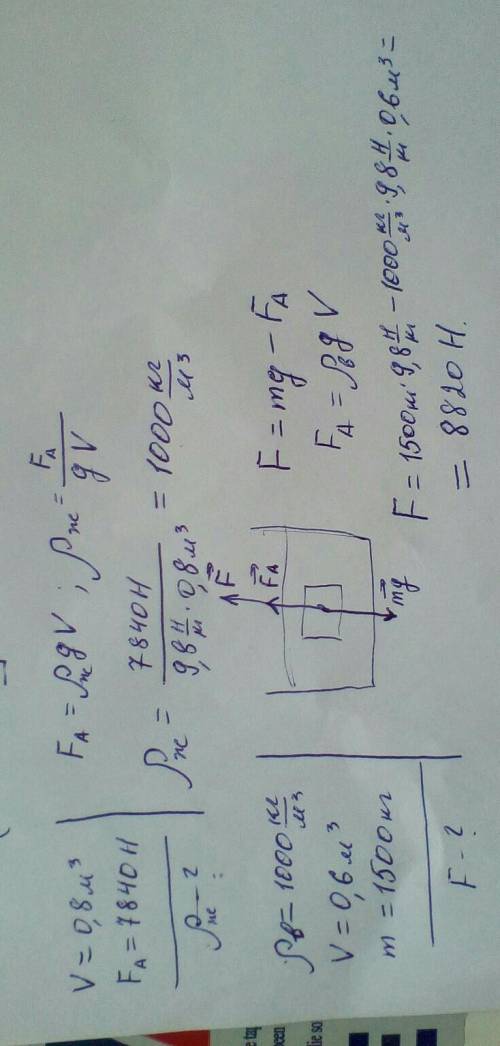 V = 0,8 м³
F_A = 7840 Н
ρ_ж - ?
F_A = ρ_ж g V ; ρ_ж = F_A / gV
ρ_ж = 7840 Н / 9,8 Н/кг · 0,8 м³ = 1000 кг/м³
ρ_в = 1000 кг/м³
V = 0,6 м³
m = 1500 кг
F - ?
F⃗
F⃗_A
mg⃗
F = mg - F_A
F_A = ρ_в g V
F = 1500 кг · 9,8 Н/кг - 1000 кг/м³ · 9,8 Н/кг · 0,6 м³ =
= 8820 Н.